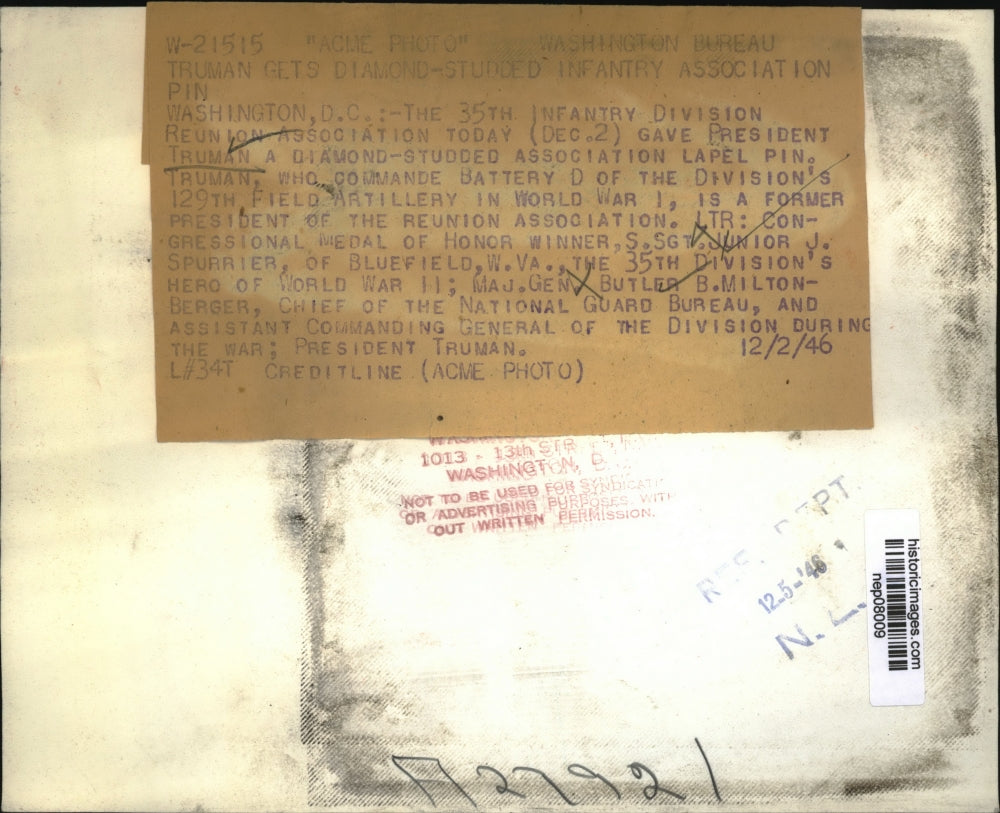 W-21515 "ACME PHOTO" WASHINGTON BUREAU
TRUMAN GETS DIAMOND-STUDDED INFANTRY ASSOCIATION
PIN
WASHINGTON,D.C.:-THE 35TH INFANTRY DIVISION
REUNION ASSOCIATION TODAY (DEC.2) GAVE PRESIDENT
TRUMAN A DIAMOND-STUDDED ASSOCIATION LAPEL PIN.
TRUMAN, WHO COMMANDE BATTERY D OF THE DIVISION'S
129TH FIELD ARTILLERY IN WORLD WAR I, IS A FORMER
PRESIDENT OF THE REUNION ASSOCIATION. LTR: CON-
GRESSIONAL MEDAL OF HONOR WINNER,S.SGT.JUNIOR J.
SPURRIER, OF BLUEFIELD,W.VA., THE 35TH DIVISION'S
HERO OF WORLD WAR II; MAJ.GEN. BUTLER B.MILTON-
BERGER, CHIEF OF THE NATIONAL GUARD BUREAU, AND
ASSISTANT COMMANDING GENERAL OF THE DIVISION DURING
THE WAR; PRESIDENT TRUMAN. 12/2/46
L#34T CREDITLINE (ACME PHOTO)
1013 - 13th STR
WASHINGTON, D.
NOT TO BE USED FOR SYNDICATE
OR ADVERTISING PURPOSES WITH
OUT WRITTEN PERMISSION.
DEPT.
12-5-'46
N. L.
historicimages.com
nep08009